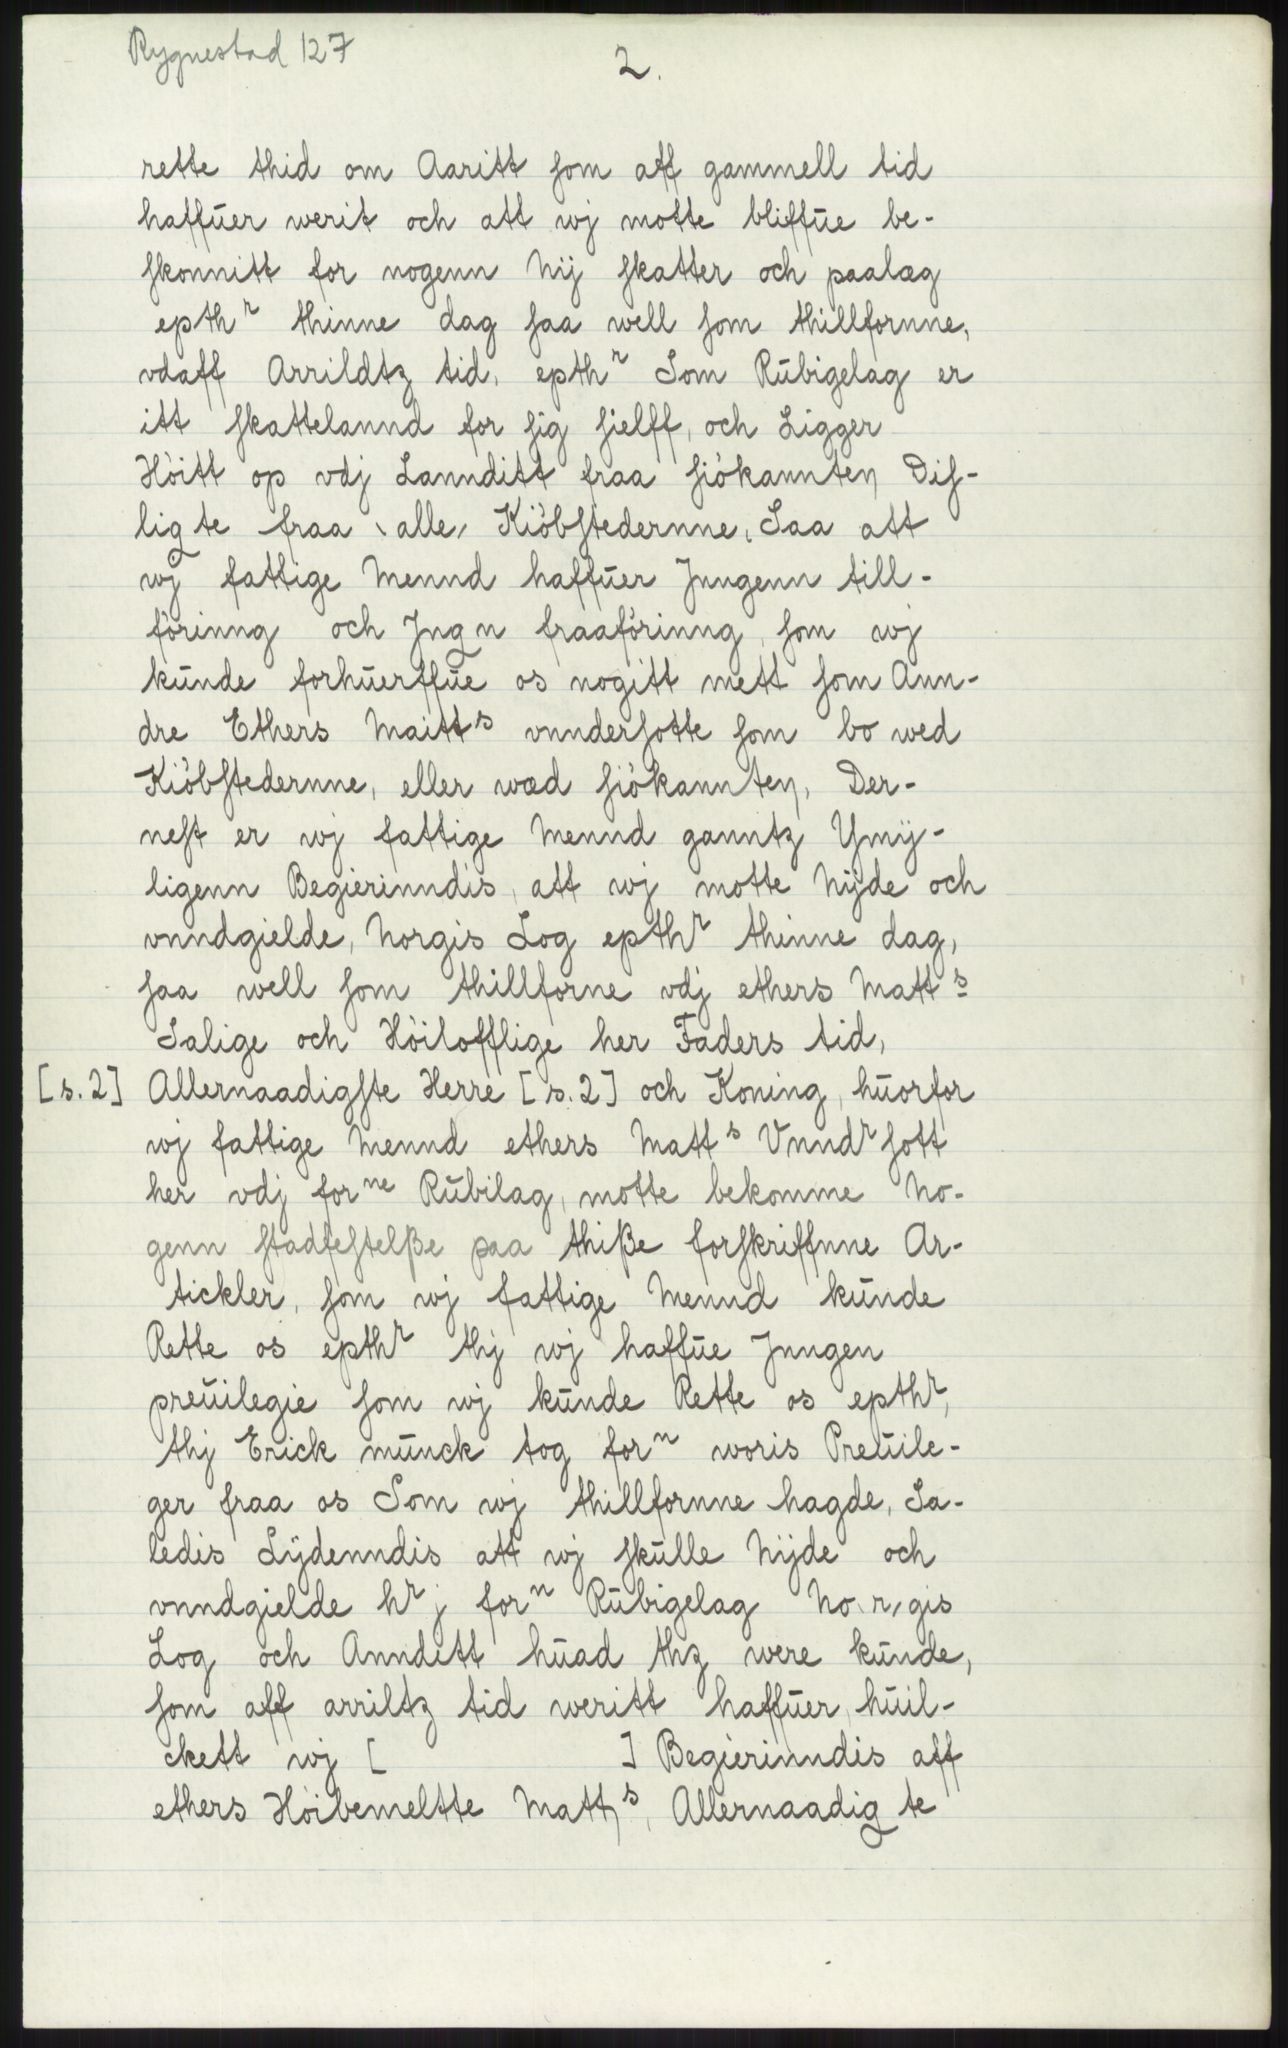 Rygnestad 127
2.
rette thid om Aaritt som aff gammell tid
haffuer werit och att wj motte bliffue be-
skonnitt for nogenn Nÿ skatter och paalæg
epthr thinne dag saa well som thillfornne,
vdaff Arrildtz tid, epthr Som Rubigelag er
itt skattelannd for sig sielff, och Ligger
Höitt op vdj Lannditt fraa siökannten Dis-
ligte fraa ‵alle′ Kiöbstedernne, Saa att
wj fattige Mennd haffuer Jnngenn till-
föring och Jngn fraaföring, som wj
kunde forhuerffue os nogitt mett som Ann-
dre Ethers Maitts vnndersotte som bo wed
Kiöbstedernne, eller wæd siökannten, Der-
nest er wj fattige Mennd ganntz Ymÿ-
ligenn Begierinndis, att wj motte Nÿde och
vnndgielde, Norgis Log epthr thinne dag,
saa well som thillforne vdj ethers Matts
Salige och Höilofflige her Faders tid,
[s.2] Allernaadigste Herre [s.2] och Koning, huorfor
wj fattige Mennd ethers Matts Vnndrsott
her vdj forne Rubilag, motte bekomme No-
genn stadfestelße paa thiße forskriffnne Ar-
tickler, som wj fattige Mennd kunde
Rette os epthr thj wj haffue Jnngen
preuilegie som wj kunde Rette os epthr,
thj Erick munck tog forn woris Preuile-
ger fraa os Som wj thillfornne hagde, Sa-
ledis Lÿdenndis att wj skulle Nÿde och
vnndgielde hr j forn Rubigelag No‵r′gis
Log och Anndett huad thz were kunde,
som aff arriltz tid weritt haffuer, huil-
ckett wj [ ] Begierinndis aff
ethers Höibemeltte Matts, Allernaadigte